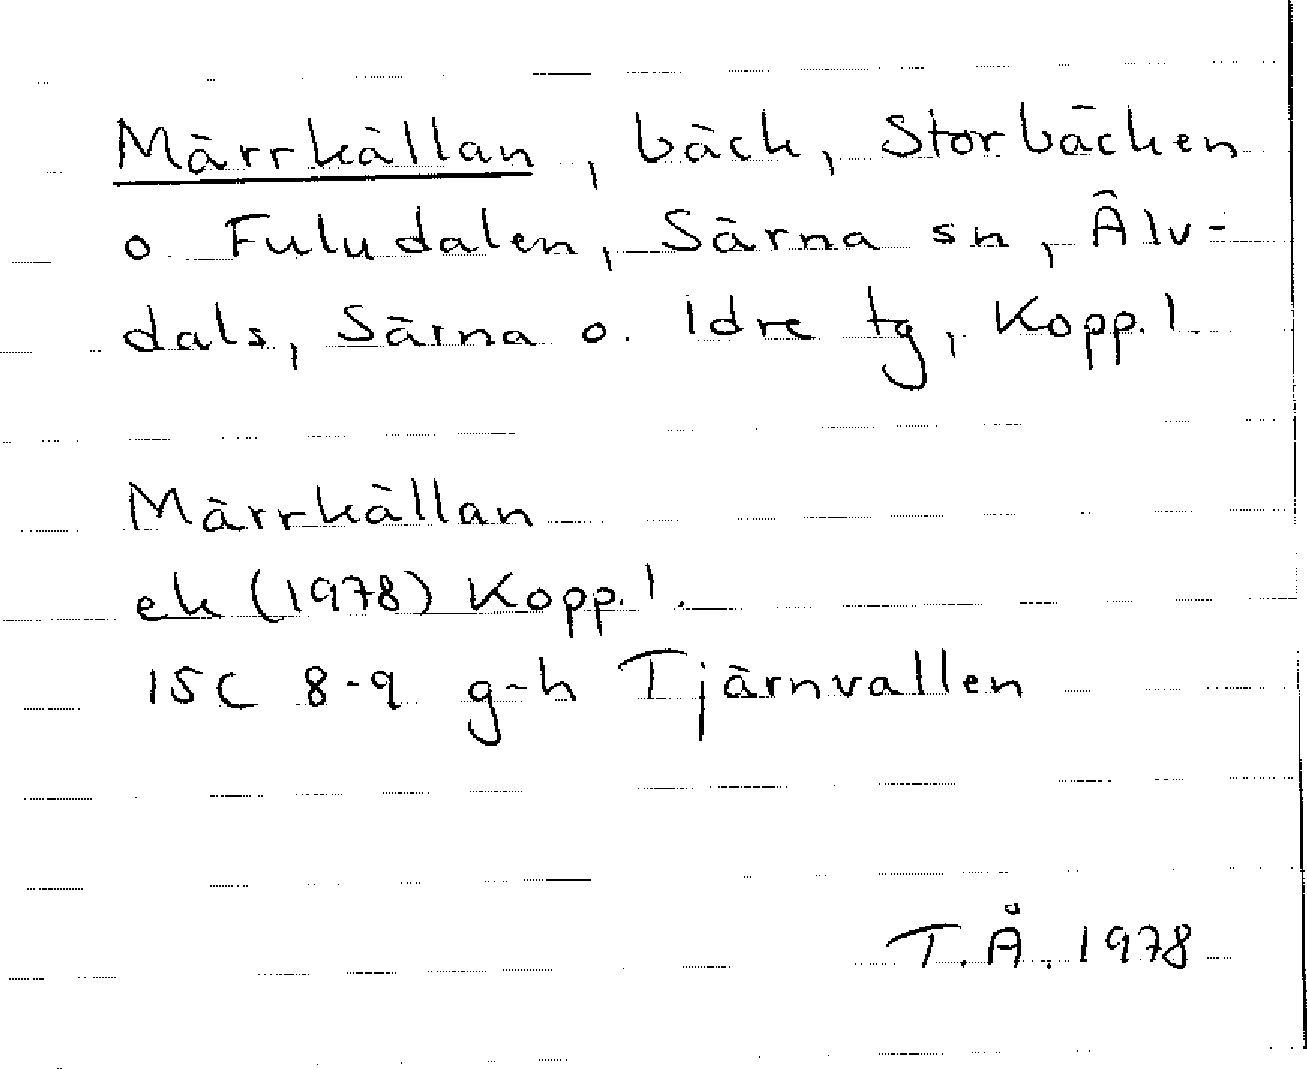 Märrkällan, bäck, Storbäcken
o Fuludalen, Särna sn, Älv-
dals, Särna o. Idre tg, Kopp. l.
Märrkällan
ek (1978) Kopp. l.
15C 8-9 g-h Tjärnvallen
T.Å. 1978